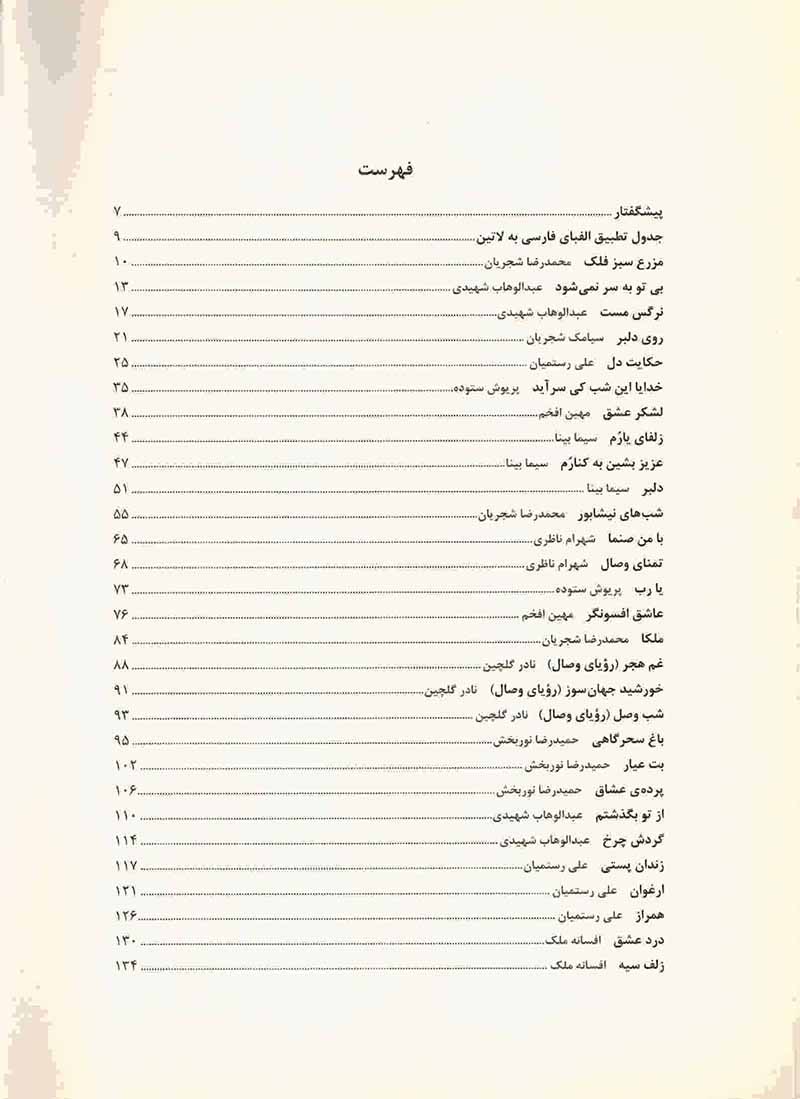 فهرست
پیشگفتار ... ۷
جدول تطبیق الفبای فارسی به لاتین ... ۹
مزرع سبز فلک محمدرضا شجریان ... ۱۰
بی تو به سر نمی‌شود عبدالوهاب شهیدی ... ۱۳
نرگس مست عبدالوهاب شهیدی ... ۱۷
روی دلبر سیامک شجریان ... ۲۱
حکایت دل علی رستمیان ... ۲۵
خدایا این شب کی سر آید پریوش ستوده ... ۳۵
لشکر عشق مهین افخم ... ۳۸
زلفای یارُم سیما بینا ... ۴۴
عزیز بشین به کنارُم سیما بینا ... ۴۷
دلبر سیما بینا ... ۵۱
شب‌های نیشابور محمدرضا شجریان ... ۵۵
با من صنما شهرام ناظری ... ۶۵
تمنای وصال شهرام ناظری ... ۶۸
یا رب پریوش ستوده ... ۷۳
عاشق افسونگر مهین افخم ... ۷۶
ملکا محمدرضا شجریان ... ۸۴
غم هجر (رؤیای وصال) نادر گلچین ... ۸۸
خورشید جهان‌سوز (رؤیای وصال) نادر گلچین ... ۹۱
شب وصل (رؤیای وصال) نادر گلچین ... ۹۳
باغ سحرگاهی حمیدرضا نوربخش ... ۹۵
بت عیار حمیدرضا نوربخش ... ۱۰۲
پرده‌ی عشاق حمیدرضا نوربخش ... ۱۰۶
از تو بگذشتم عبدالوهاب شهیدی ... ۱۱۰
گردش چرخ عبدالوهاب شهیدی ... ۱۱۴
زندان پستی علی رستمیان ... ۱۱۷
ارغوان علی رستمیان ... ۱۲۱
همراز علی رستمیان ... ۱۲۶
درد عشق افسانه ملک ... ۱۳۰
زلف سیه افسانه ملک ... ۱۳۴